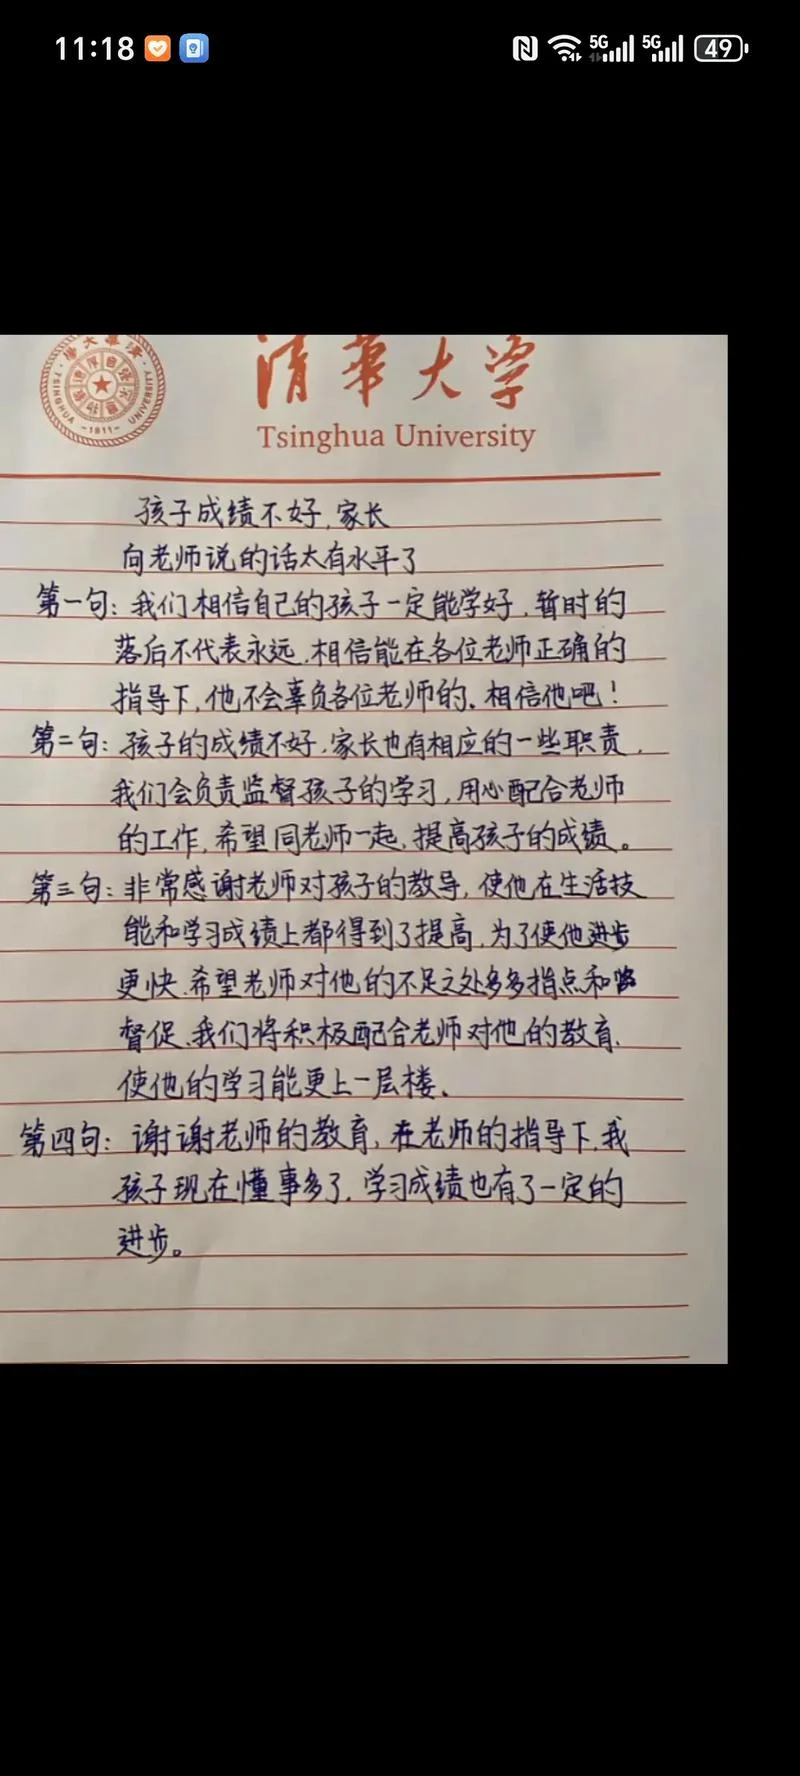 11:18
5G 5G 49
清華大学
TSINGHUA UNIVERSITY
-1911-
Tsinghua University
孩子成绩不好,家长
向老师说的话太有水平了
第一句:我们相信自己的孩子一定能学好,暂时的
落后不代表永远,相信能在各位老师正确的
指导下,他不会辜负各位老师的、相信他吧!
第二句:孩子的成绩不好,家长也有相应的一些职责,
我们会负责监督孩子的学习,用心配合老师
的工作,希望同老师一起、提高孩子的成绩。
第三句:非常感谢老师对孩子的教导,使他在生活技
能和学习成绩上都得到了提高,为了使他进步
更快、希望老师对他的不足之处多多指点和
督促、我们将积极配合老师对他的教育、
使他的学习能更上一层楼、
第四句:谢谢老师的教育,在老师的指导下,我
孩子现在懂事多了,学习成绩也有了一定的
进步。